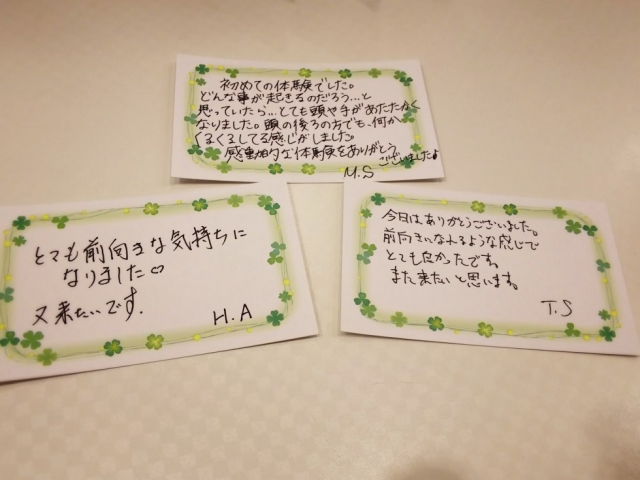 初めての体験でした。
どんな事が起きるのだろう…と
思っていたら…とても頭や手があたたかく
なりました。頭の後ろの方でも、何か
くるくるしてる感じがしました。
感動的な体験をありがとう
ございました♪
M.S
とても前向きな気持ちに
なりました♡
又来たいです.
H.A
今日はありがとうございました。
前向きになれるような感じで
とても良かったです。
また来たいと思います。
T.S